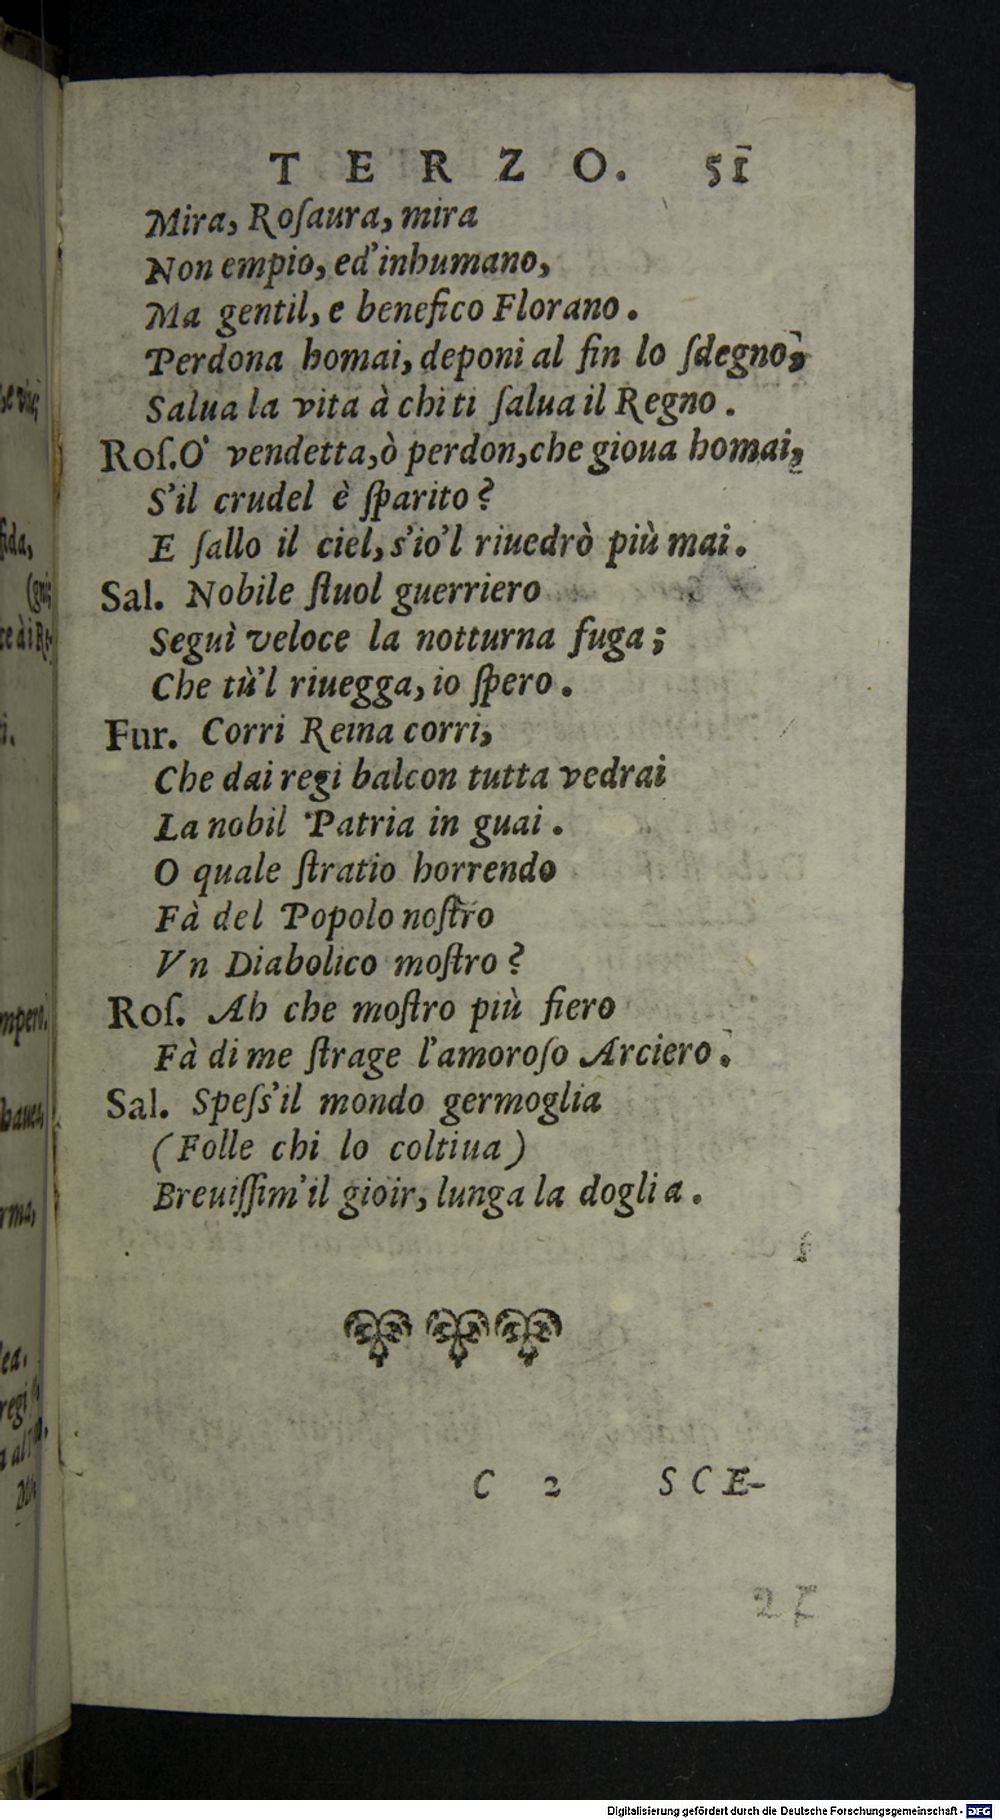 TERZO. 51
Mira, Roſaura, mira
Non empio, ed'inhumano,
Ma gentil, e benefico Florano.
Perdona homai, deponi al fin lo ſdegno,
Salua la vita à chi ti ſalua il Regno.
Roſ. O' vendetta, ò perdon, che gioua homai,
S'il crudel è ſparito?
E ſallo il ciel, s'io'l riuedrò più mai.
Sal. Nobile ſtuol guerriero
Seguì veloce la notturna fuga;
Che tù'l riuegga, io ſpero.
Fur. Corri Reina corri,
Che dai regi balcon tutta vedrai
La nobil Patria in guai.
O quale ſtratio horrendo
Fà del Popolo noſtro
Vn Diabolico moſtro?
Roſ. Ah che moſtro più fiero
Fà di me ſtrage l'amoroſo Arciero.
Sal. Speſs'il mondo germoglia
(Folle chi lo coltiua)
Breuiſſim'il gioir, lunga la doglia.
C 2 SCE-
Digitalisierung gefördert durch die Deutsche Forschungsgemeinschaft - DFG